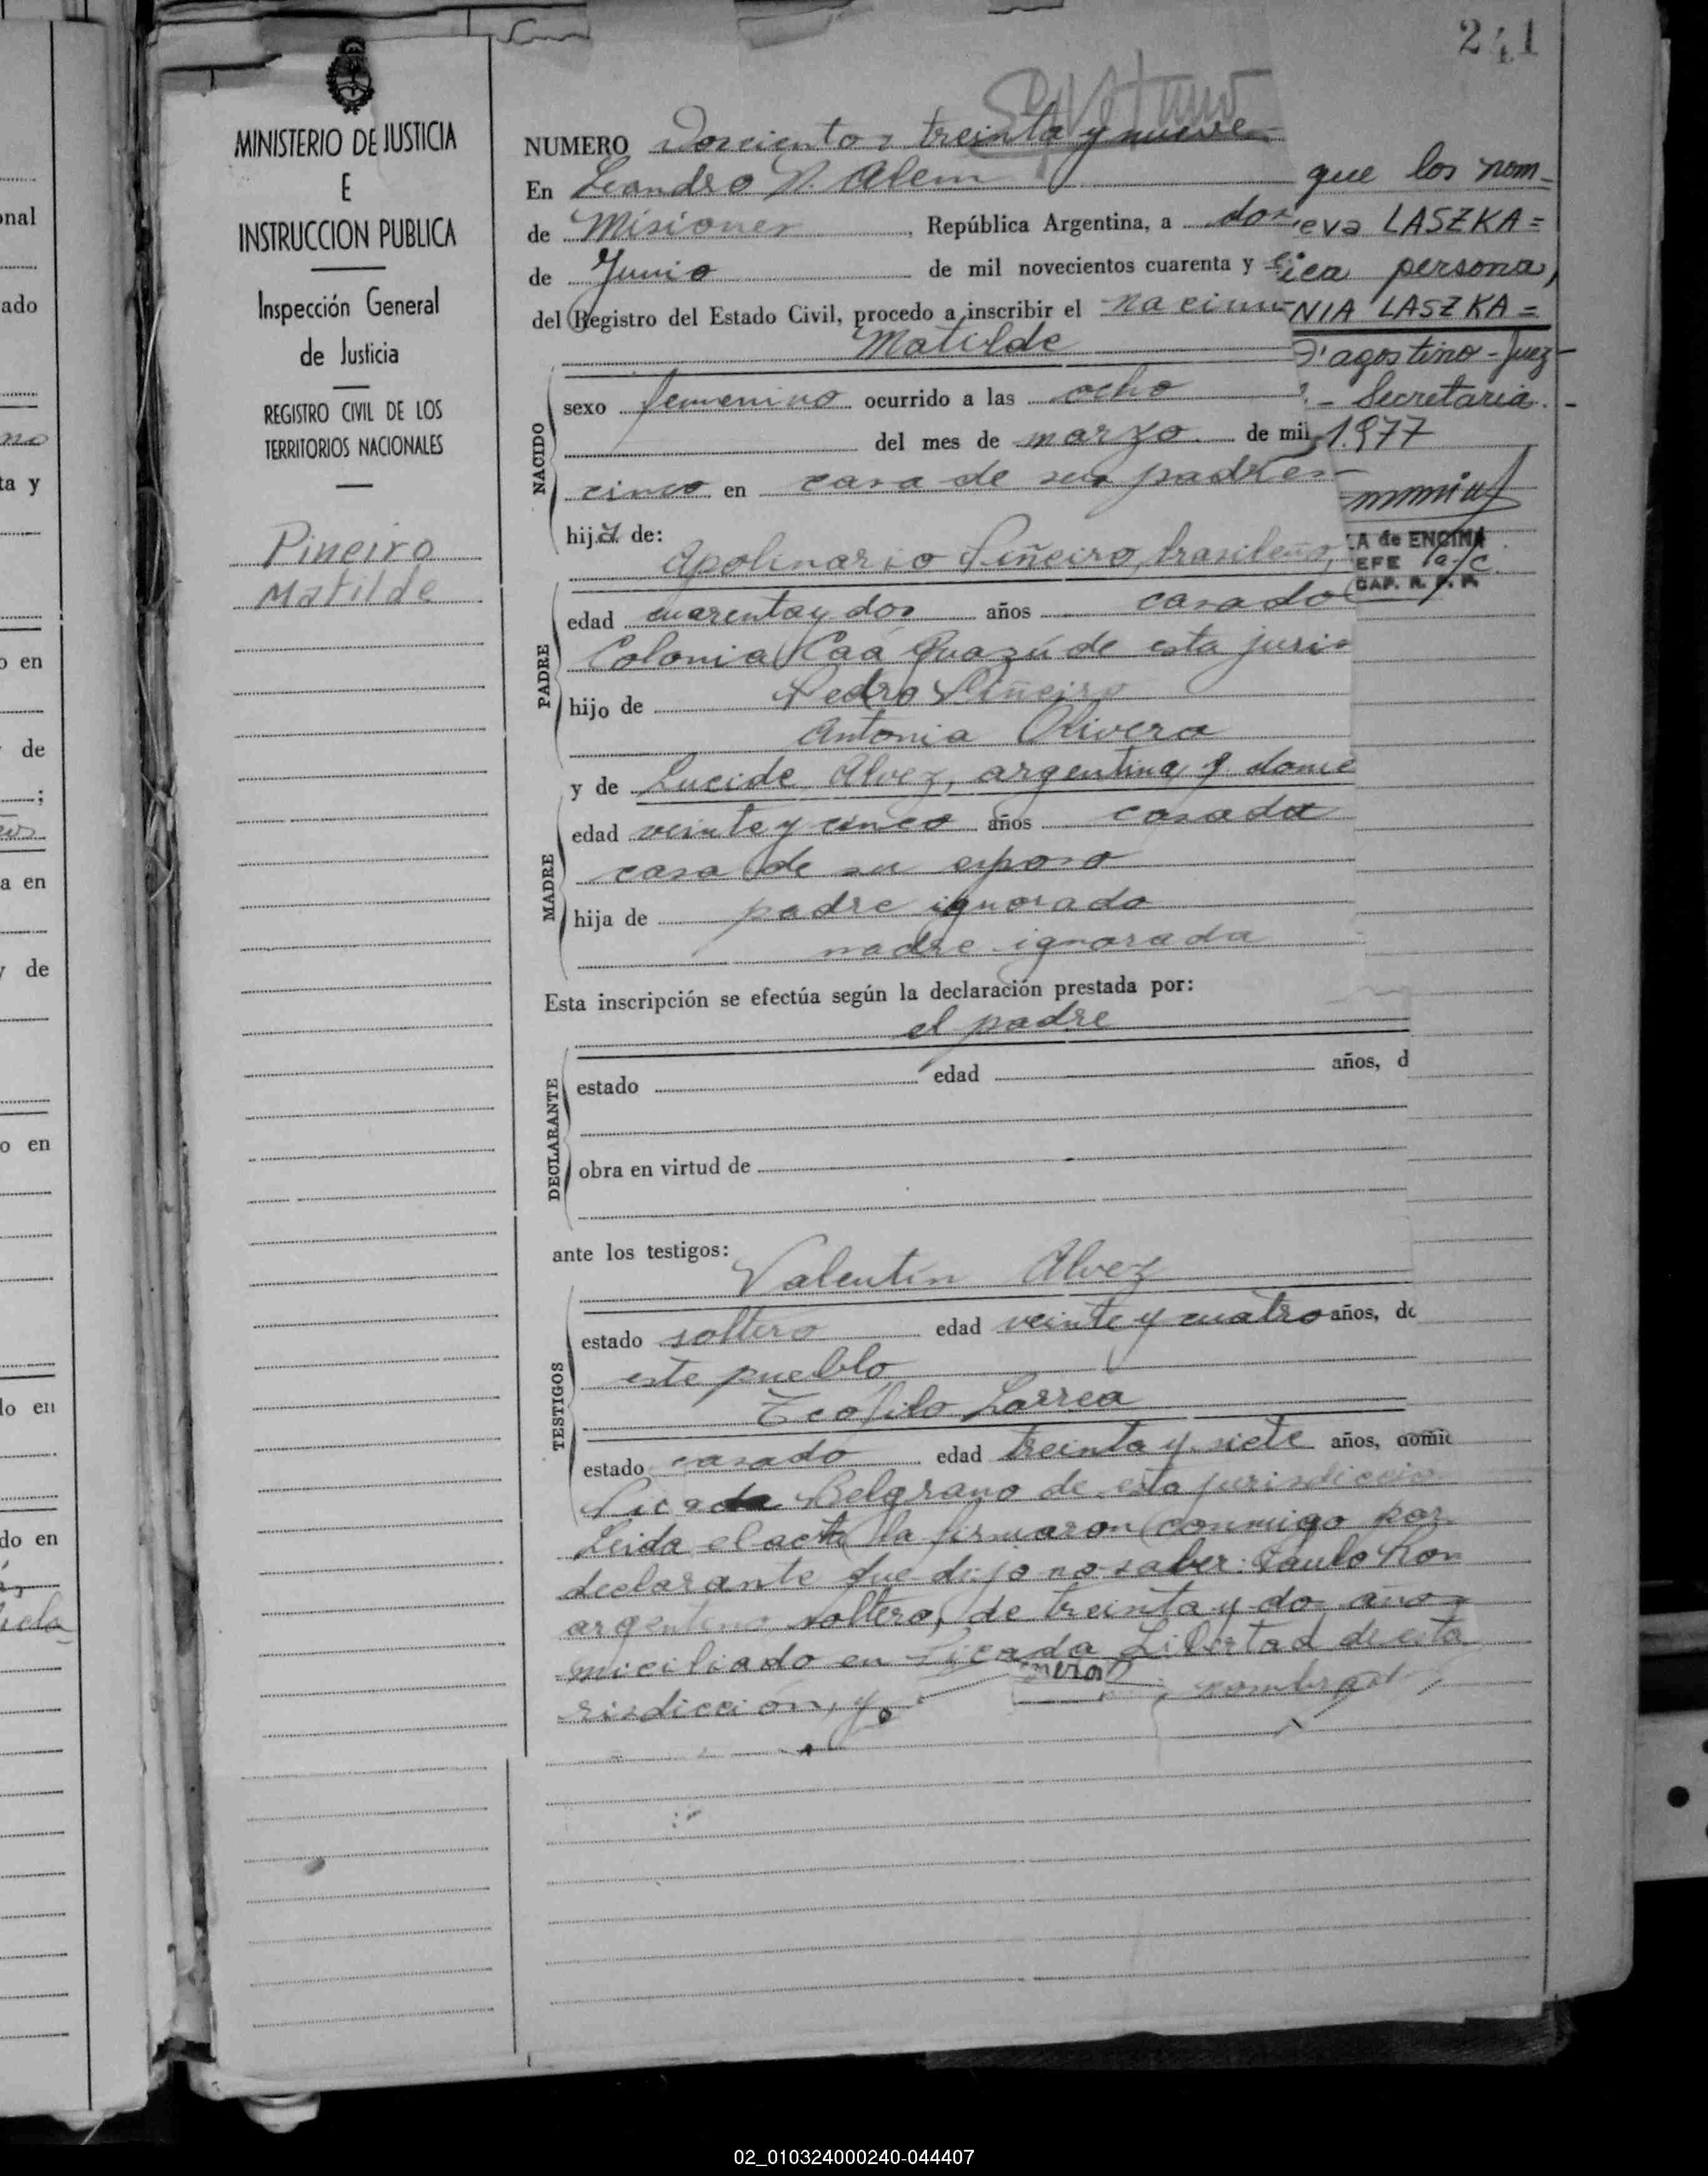 241
MINISTERIO DE JUSTICIA
E
INSTRUCCION PUBLICA
Inspección General
de Justicia
REGISTRO CIVIL DE LOS
TERRITORIOS NACIONALES
Pineiro
Matilde
NUMERO Doscientos treinta y nueve
En Leandro N. Alem
de Misiones, República Argentina, a dos
de Junio de mil novecientos cuarenta y
del Registro del Estado Civil, procedo a inscribir el nacimi
Matilde
NACIDO
sexo femenino ocurrido a las ocho
del mes de marzo de mil
cinco en casa de sus padres
hija de:
Apolinario Piñeiro, brasileño,
PADRE
edad cuarenta y dos años casado
Colonia Caá Guazú de esta juris
hijo de Pedro Piñeiro
Antonia Olivera
y de Lucide Alvez, argentina, y domi
MADRE
edad veinte y cinco años casada
casa de su esposo
hija de padre ignorado
madre ignorada
Esta inscripción se efectúa según la declaración prestada por:
el padre
DECLARANTE
estado edad años, d
obra en virtud de
ante los testigos:
Valentín Alvez
TESTIGOS
estado soltero edad veinte y cuatro años, do
este pueblo
Teófilo Larrea
estado casado edad treinta y siete años, domic
Picada Belgrano de esta jurisdicció
Leida el acta la firmaron conmigo por
declarante que dijo no saber: Paulo Ron
argentino soltero, de treinta y dos años
miciliado en Picada Libertad de esta
risdicción, y
nombrad
que los nom-
eva LASZKA=
ica persona,
NIA LASZKA=
D'agostino - Juez-
- Secretaria.-
1977
LA de ENCINA
EFE a/c.
CAP. R. P. P.
onal
ado
no
ta y
o en
de
;
a en
y de
o en
lo en
do en
02_010324000240-044407